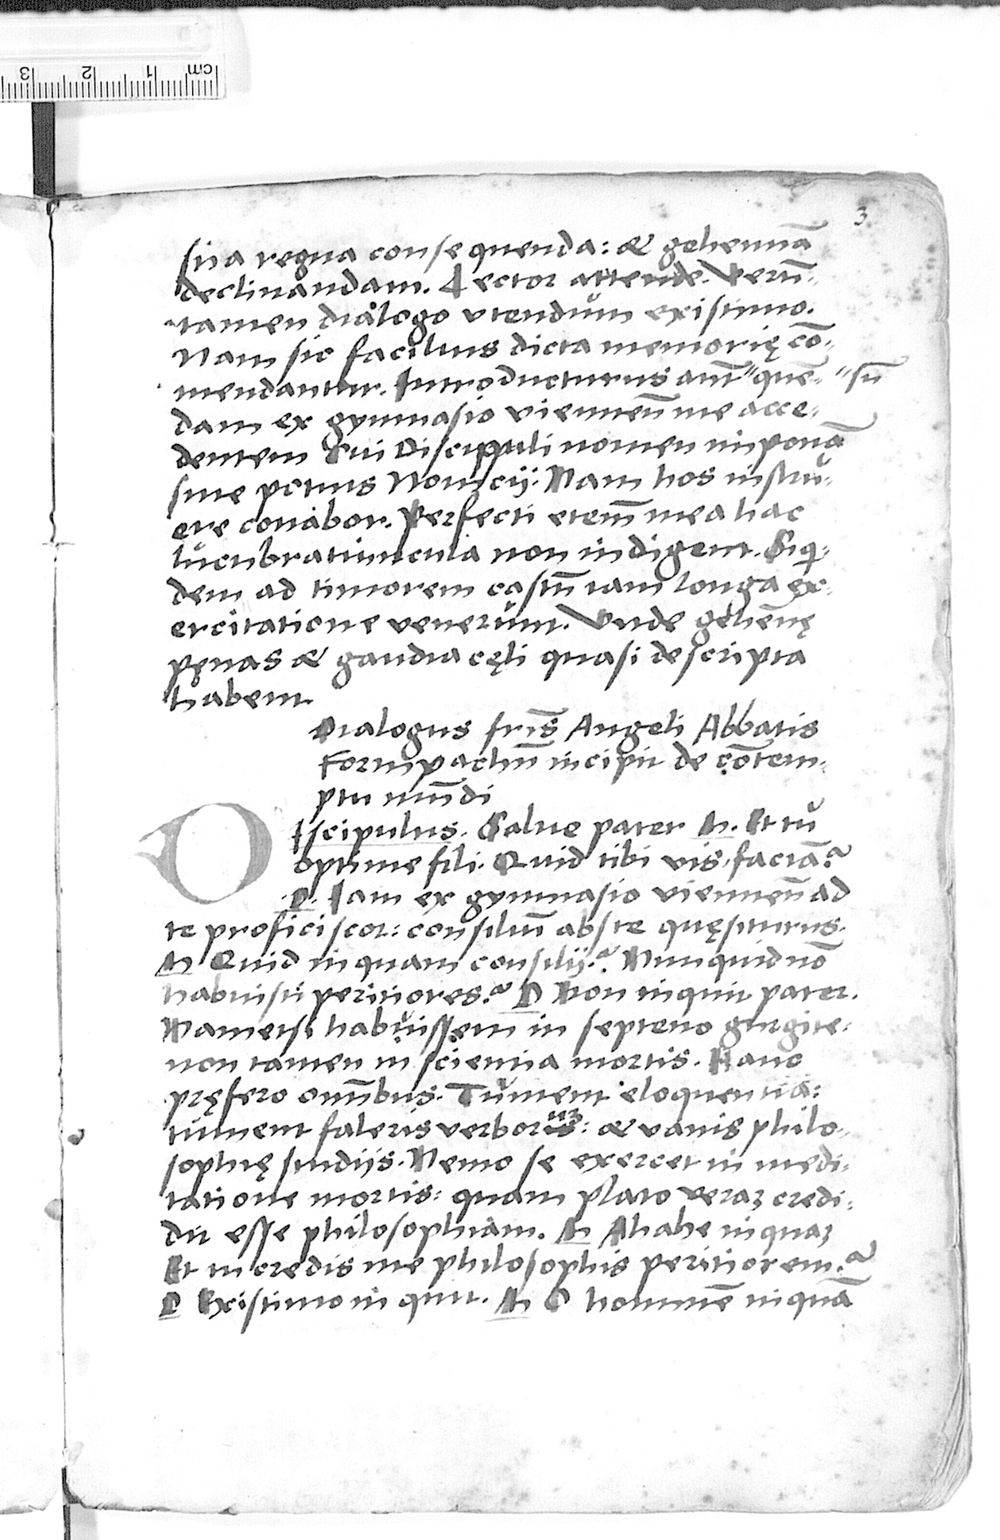 3
stia regna consequenda: & gehennā
declinandam. Lector attende. Verū-
tamen dialogo vtendum existimo.
Nam sic facilius dicta memorię cō-
mendantur. Introducturus aut̄ " quē- " sū
dam ex gymnasio viennen̄ me acce-
dentem Cui Discipuli nomen imponā
siue potius Nouicij. Nam hos instru-
ere conabor. Perfecti etem̄ mea hac
lucubratiuncula non indigent. Siqi-
dem ad timorem castū iam longa ex-
ercitatione venerunt. Vnde gehēnę
pęnas & gaudia cęli quasi descripta
habent
Dialogus fris̄ Angeli Abbatis
Formpachn̄ incipit de cōtem-
ptu mūdi
Discipulus. Salue pater A. Et tu
optime fili. Quid tibi vis faciā?
D. Iam ex gymnasio viennen̄ ad
te proficiscor: consiliū abs te quęsiturus.
A Quid inquam consilij? Nunquid nō
habuisti peritiores? D Non inquit pater.
Nametsi habuissem in septeno gurgite:
non tamen in scientia mortis. Hanc
pręfero omn̄bus. Tument eloquentiā:
tument faleris verboruȝ: & vanis philo-
sophię studijs. Nemo se exercet in medi-
tatione mortis: quam plato veraȝ credi-
dit esse philosophiam. A Ahahe inquaȝ
Et tu credis me philosophis peritiorem?
D Existimo inquit. A O hominē inquā